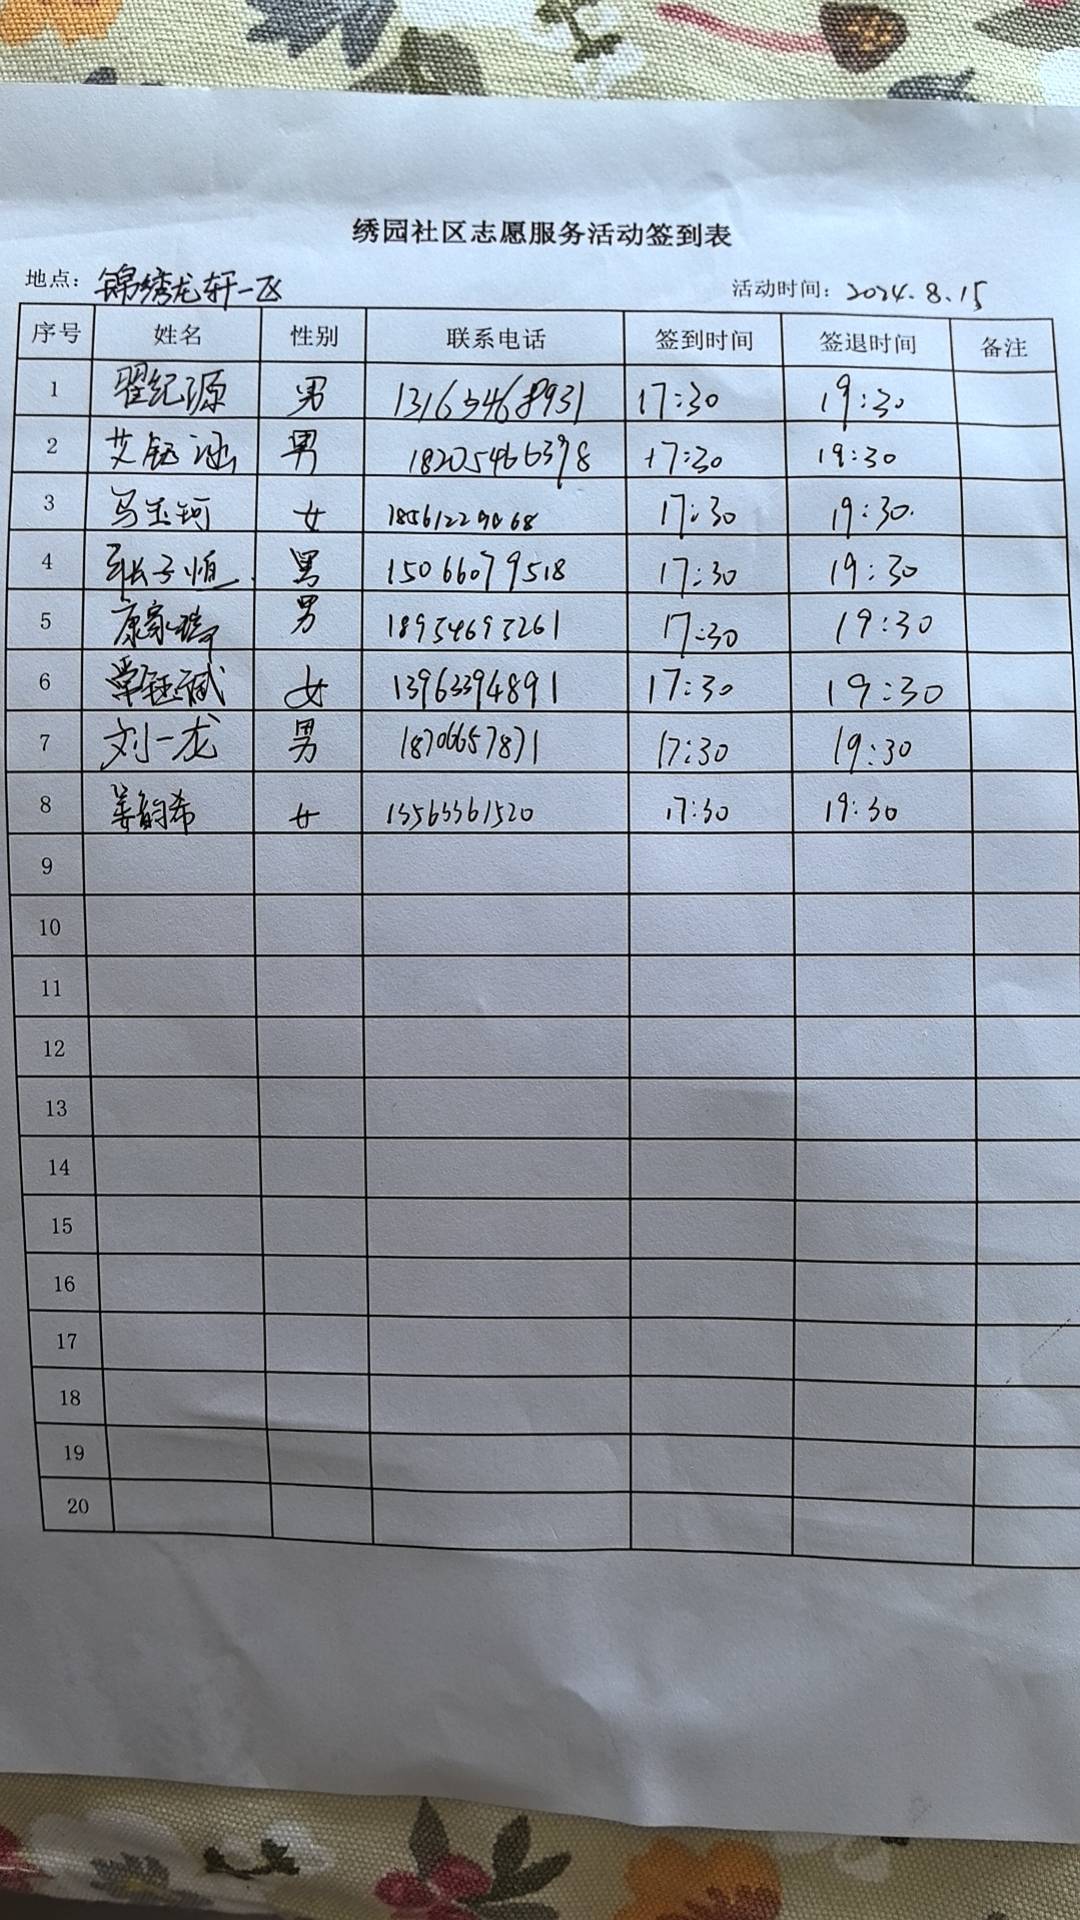 绣园社区志愿服务活动签到表
地点：锦绣龙轩一区 活动时间：2024.8.15
序号 姓名 性别 联系电话 签到时间 签退时间 备注
1 翟纪源 男 13165468931 17:30 19:30
2 艾钰涵 男 18205466398 17:30 19:30
3 马玉珂 女 17:30 19:30
4 张子恒 男 15066079518 17:30 19:30
5 康家 男 18954695261 17:30 19:30
6 女 13963394891 17:30 19:30
7 刘一龙 男 18706657871 17:30 19:30
8 姜韵希 女 13563361520 17:30 19:30
9
10
11
12
13
14
15
16
17
18
19
20